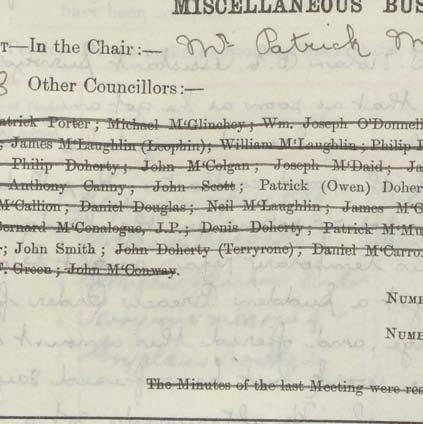 MISCELLANEOUS BUS
T—In the Chair:— Mr Patrick M
3 Other Councillors:—
atrick Porter; Michael M'Glinchey; Wm. Joseph O'Donnell
; James M'Laughlin (Leophin); William M'Laughlin; Philip
Philip Doherty; John M'Colgan; Joseph M'Daid; Ja
Anthony Canny; John Scott; Patrick (Owen) Doher
M'Callion; Daniel Douglas; Neil M'Laughlin; James M'G
Bernard M'Conalogue, J.P.; Denis Doherty; Patrick M'Mu
; John Smith; John Doherty (Terryrone); Daniel M'Carro
F. Green; John M'Conway.
NUMB
NUMB
The Minutes of the last Meeting were rea